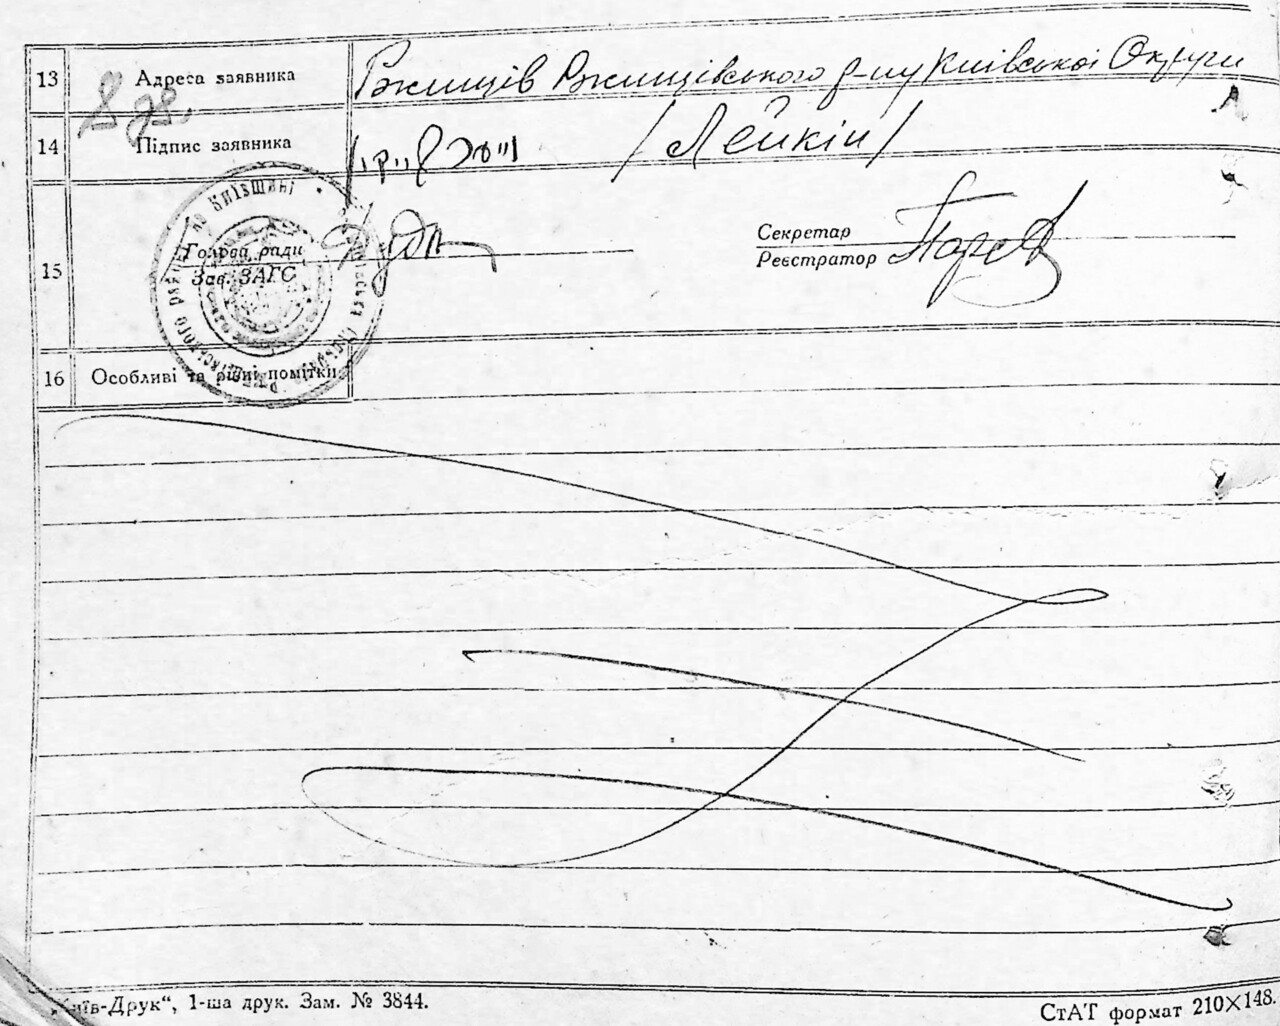 13 Адреса заявника Ржищів Ржищівського р-ну Київської Округи
14 Підпис заявника /Лейкін/
15 Голова ради
Зав. ЗАГС
Секретар
Реєстратор
16 Особливі та різні помітки
Київ-Друк“, 1-ша друк. Зам. № 3844.
СтАТ формат 210×148.